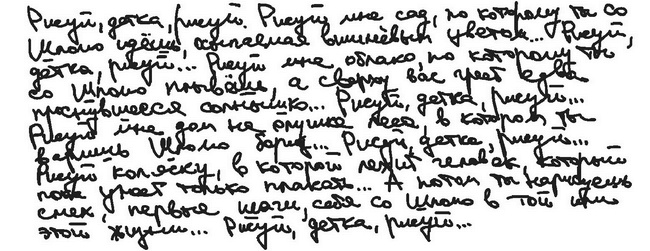 Рисуй, детка, рисуй. Рисуй мне сад, по которому ты со
Мною идёшь, осыпаемая вишнёвым цветом... Рисуй,
детка, рисуй... Рисуй мне облако, по которому ты
со Мною плывёшь, а сверху вас греет едва
проснувшееся солнышко... Рисуй, детка, рисуй...
Рисуй мне дом на опушке леса, в котором ты
варишь Мною борщ... Рисуй, детка, рисуй...
Рисуй коляску, в которой лежит человек, который
пока умеет только плакать... А потом ты нарисуешь
смех, первые шаги, себя со Мною в той или
этой жизни... Рисуй, детка, рисуй...